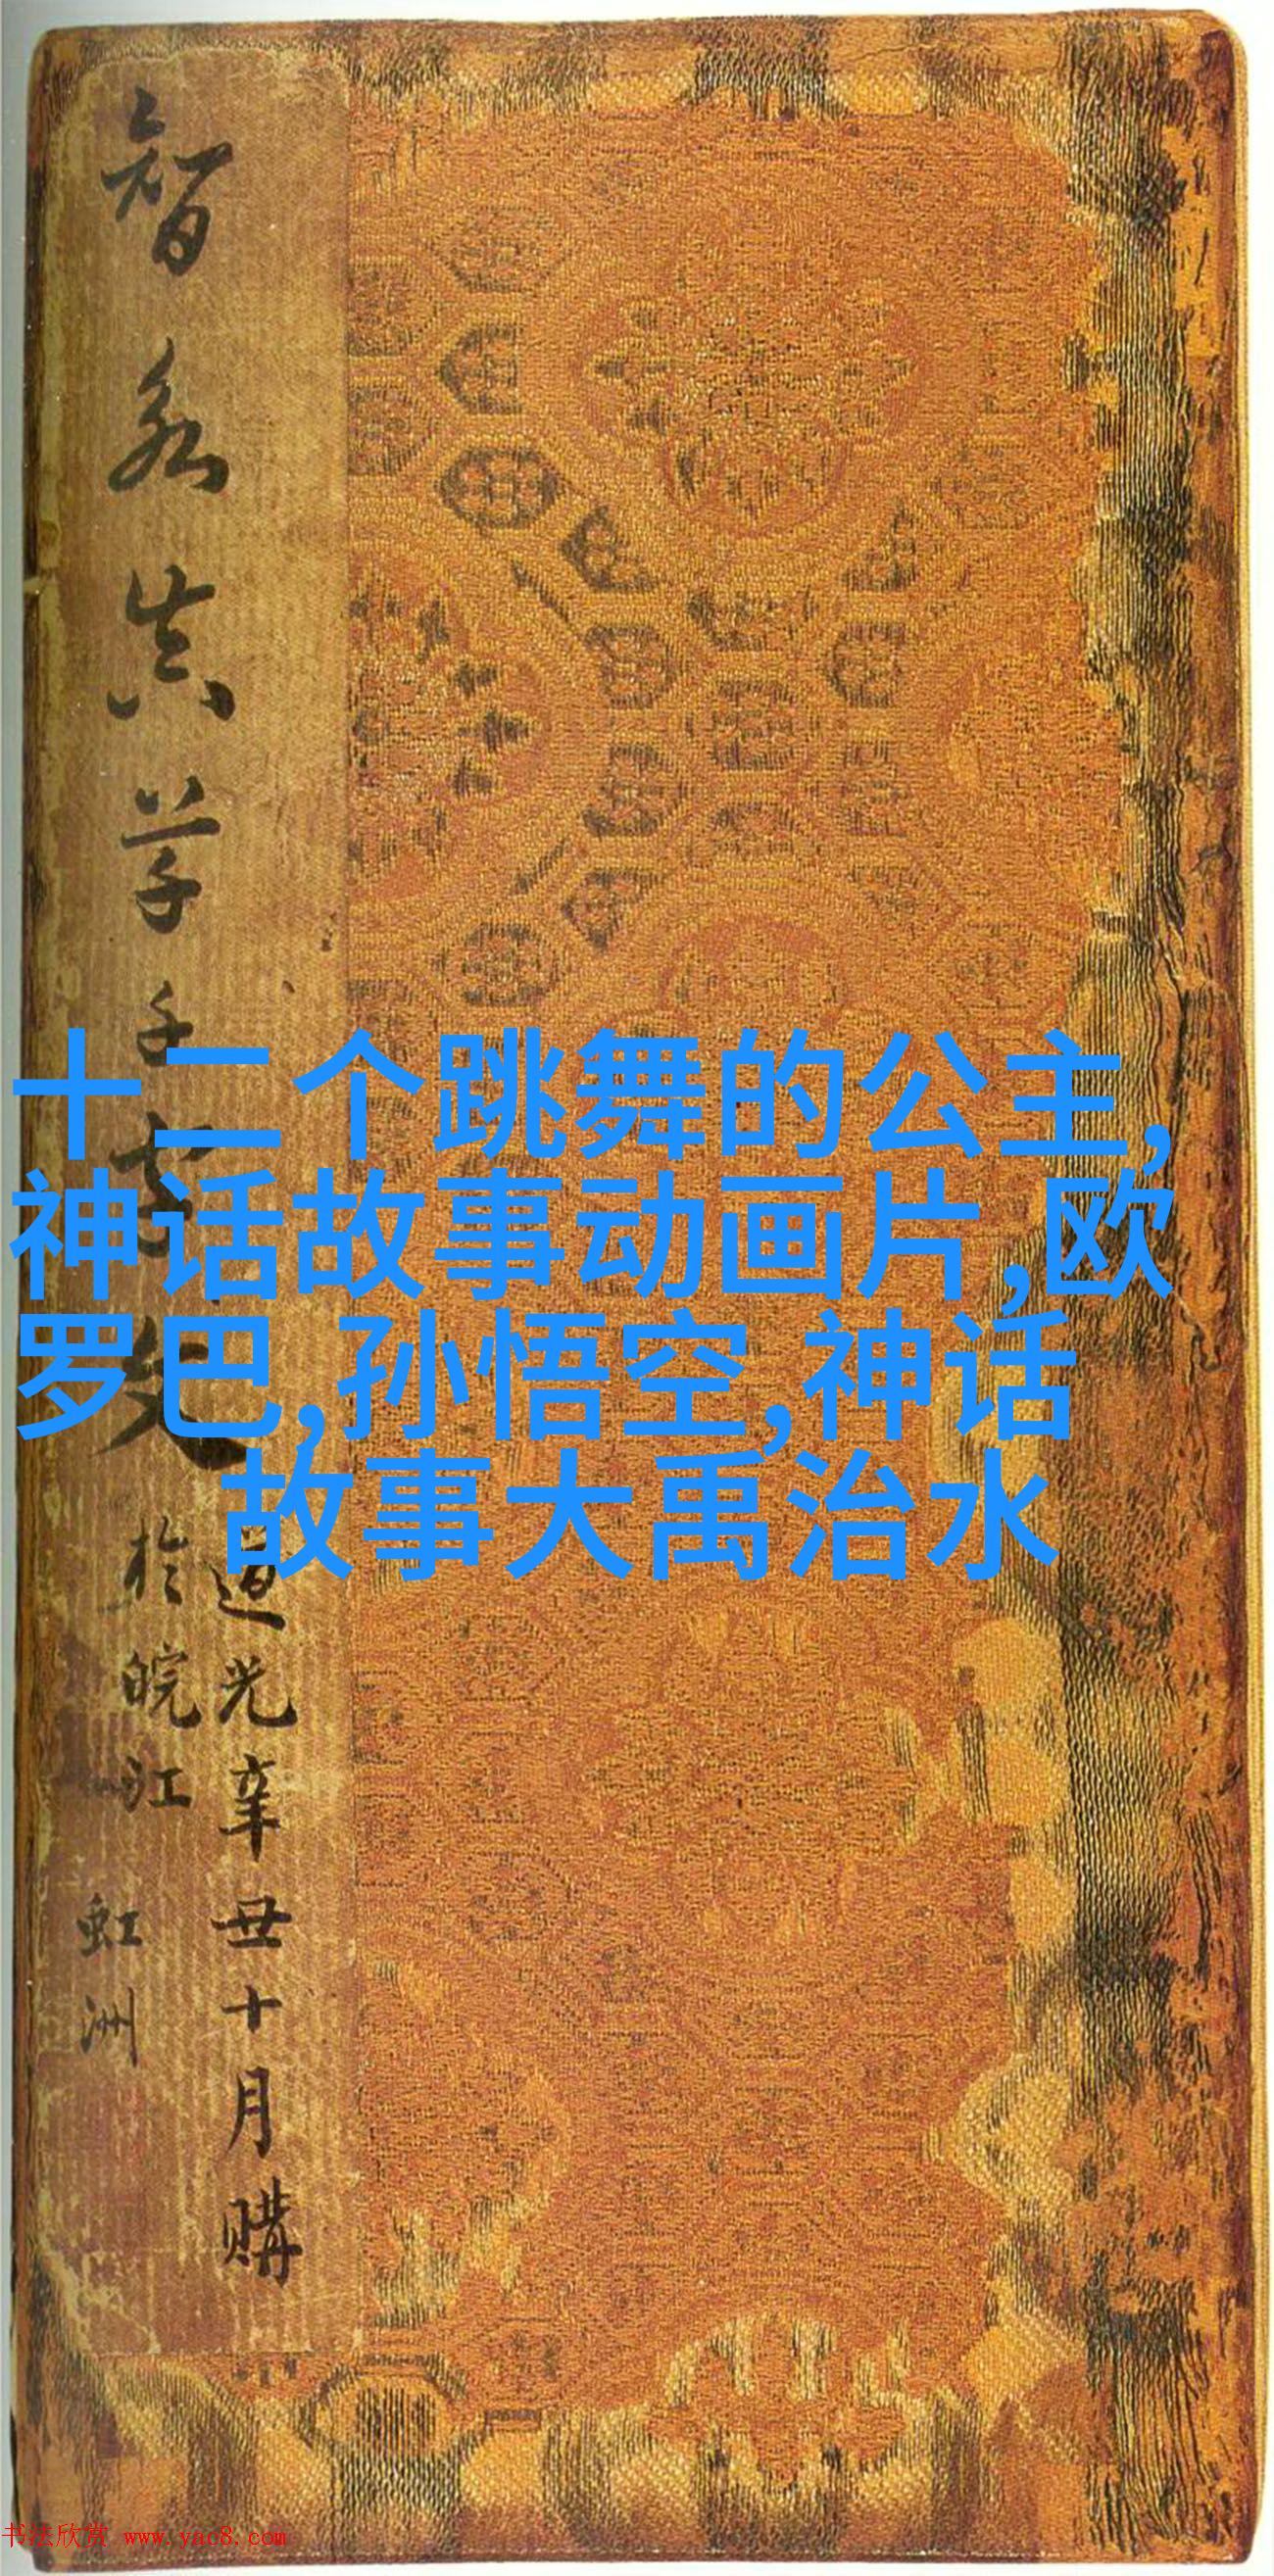 十二个跳舞的公主,
神话故事动画片,欧
罗巴,孙悟空,神话
故事大禹治水
智永真草千字文
道光辛丑十月購
於皖江
虹洲
书法欣赏 www.yac8.com